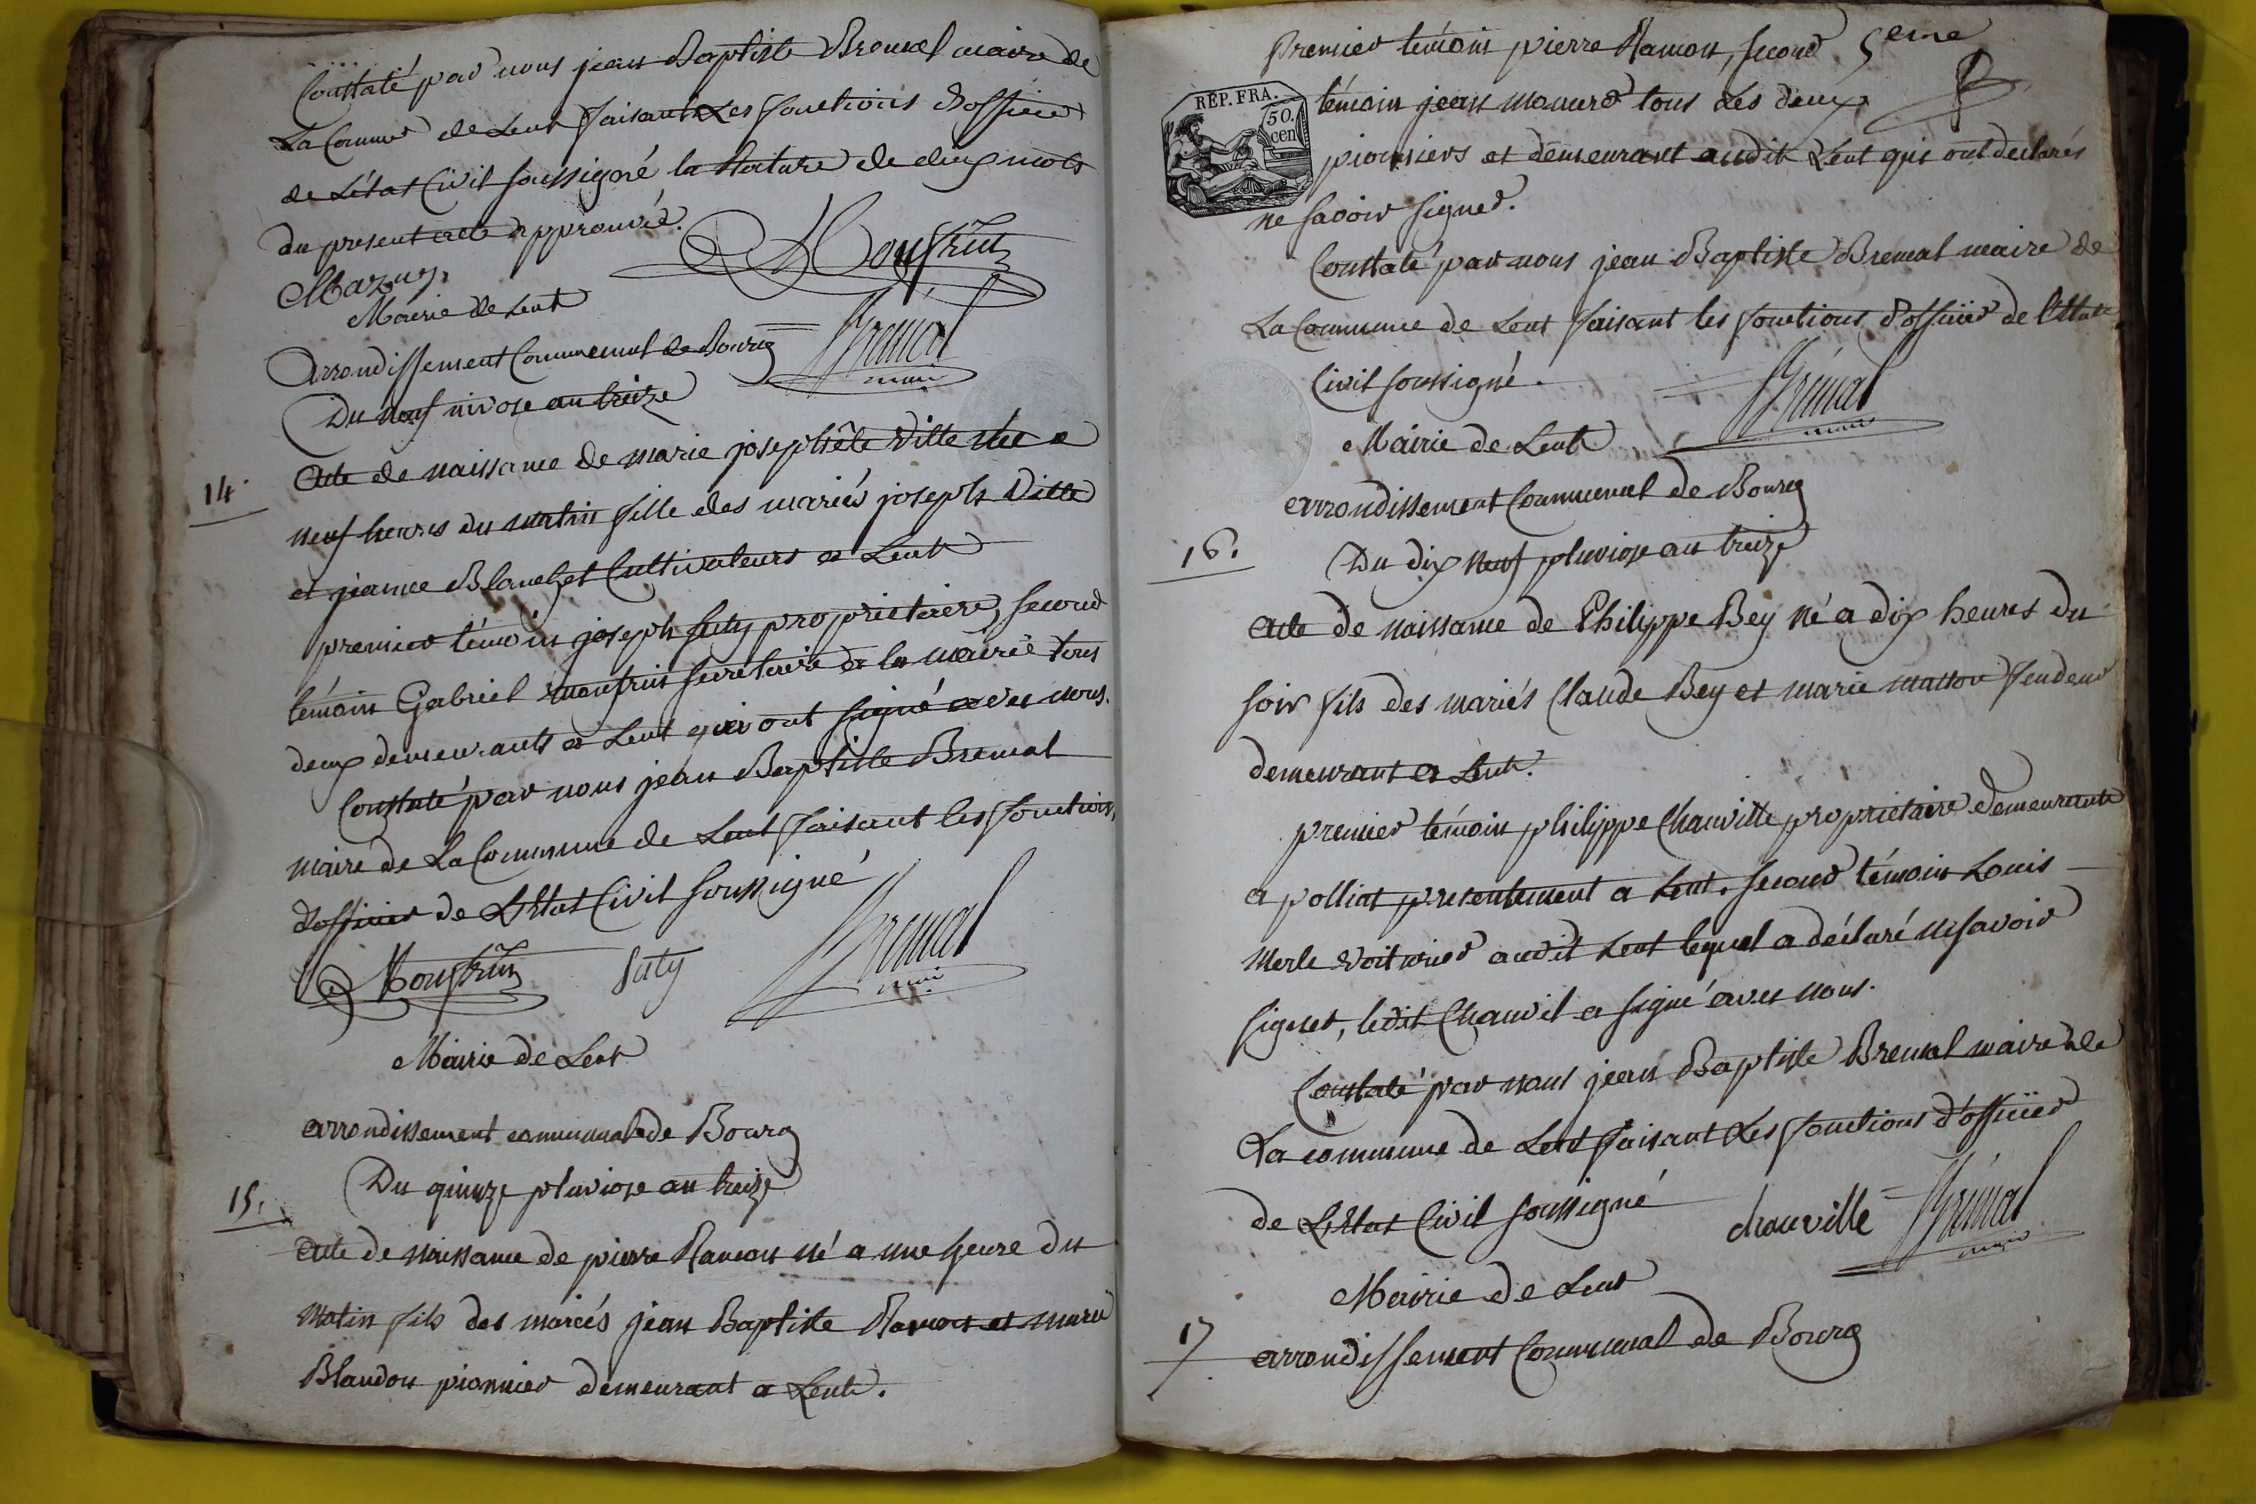 Constaté par nous jean Baptiste Bremal maire de
La Comune de Lent faisant Les fonctions d'officier
de L'état Civil soussigné la Rature de deux mots
du present acte approuvée.
Monfrin
Mazuy
Mairie de Lent
Arrondissement Communal de Bourg
Brémal
maire
Du neuf nivose an treize
14.
Acte de naissance de marie josephête Ville née a
neuf heures du matin fille des mariés joseph Ville
et jeanne Blanchet Cultivateurs a Lent
premier témoin joseph futy propriétaire, second
témoin Gabriel monfrin secretaire de la mairie tous
deux demeurants a Lent qui ont signé avec nous.
Constaté par nous jean Baptiste Bremal
maire de La Commune de Lent faisant les fonctions
d'officier de L'Etat Civil soussigné
Monfrin futy Brémal
maire
Mairie de Lent
arrondissement communal de Bourg
Du quinze pluviose an treize
15.
Acte de naissance de pierre Ramon né a une heure du
matin fils des mariés jean Baptiste Ramon et marie
Blandon pionnier demeurant a Lent.
premier témoin pierre Ramon, second 5eme
REP. FRA.
50. cen
témoin jean monierd tous les deux
pionniers et demeurant audit Lent qui ont declarés
ne savoir signer.
Constaté par nous jean Baptiste Bremal maire de
La Commune de Lent faisant les fonctions d'officier de l'Etat
Civil soussigné.
Brémal
maire
Mairie de Lent
arrondissement Communal de Bourg
16.
Du dix neuf pluviose an treize
Acte de naissance de Philippe Bey né a dix heures du
soir fils des mariés Claude Bey et marie masson fendeur
demeurant a Lent.
premier témoin philippe Chauville propriétaire demeurant
a polliat presentement a Lent. second témoin Louis
Merle voiturier audit Lent lequel a déclaré ne savoir
signer, ledit Chauvil a signé avec nous.
Constaté par nous jean Baptiste Bremal maire de
La commune de Lent faisant Les fonctions d'officier
de L'Etat Civil soussigné
chauville Brémal
maire
Mairie de Lent
17
arrondissement Communal de Bourg